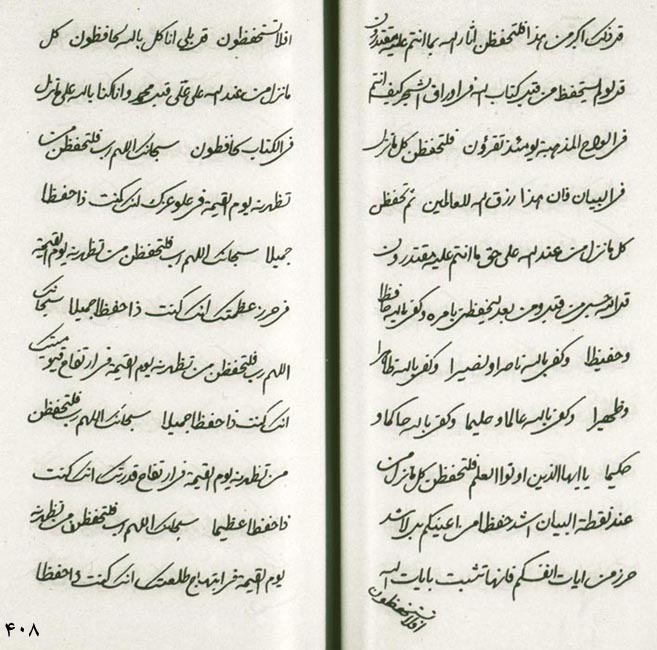 قد ذلك اكبر من هذا فلتحفظن اثار الله بما انتم عليه مقتدرون
قد يوم ليستحفظ من قبل كتاب الله فى اوراق الشجر كيف انتم
فى الواح المذهبة يومئذ تقرؤن فلتحفظن كل ما نزل
فى البيان فان هذا رزق الله للعالمين ثم تحفظن
كل ما نزل من عند الله على حق ما انتم عليه مقتدرون
من قبل ومن بعد ليحفظن بامره وكفى بالله حافظا
وحفيظا وكفى بالله ناصرا ونصيرا وكفى بالله ظاهرا
وظهيرا وكفى بالله عالما وحليما وكفى بالله حاكما و
حكيما يا ايها الذين اوتوا العلم فلتحفظن كل ما نزل من
عند نقطة البيان اشد حفظا من اعينكم بل اشد
حرز من ايات انفسكم فانها تثبت بايات الله
افلا تستحفظون
افلا تستحفظون قل بلى انا كل بالله حافظون كل
ما نزل من عند الله على على قبل محمد وانا كنا بالله على ما نزل
فى الكتاب حافظون سبحانك اللهم رب فلتحفظن من
تظهرنه يوم القيمة فى علو عزك انك كنت ذا حفظا
جميلا سبحانك اللهم رب فلتحفظن من تظهرنه يوم القيمة
فى حرز عظمتك انك كنت ذا حفظا جميلا سبحانك
اللهم رب فلتحفظن من تظهرنه يوم القيمة فى ارتفاع قيوميتك
انك كنت ذا حفظا جميلا سبحانك اللهم رب فلتحفظن
من تظهرنه يوم القيمة فى ارتفاع قدرتك انك كنت
ذا حفظا عظيما سبحانك اللهم رب فلتحفظن من تظهرنه
يوم القيمة فى ابتهاج طلعتك انك كنت ذا حفظا
۴۰۸